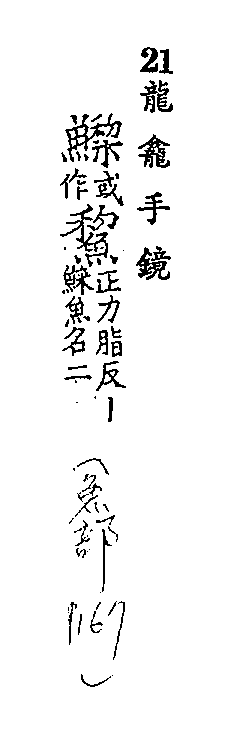 21龍龕手鏡
或作鯬正力脂反丨鯠魚名二
(魚部
P167)